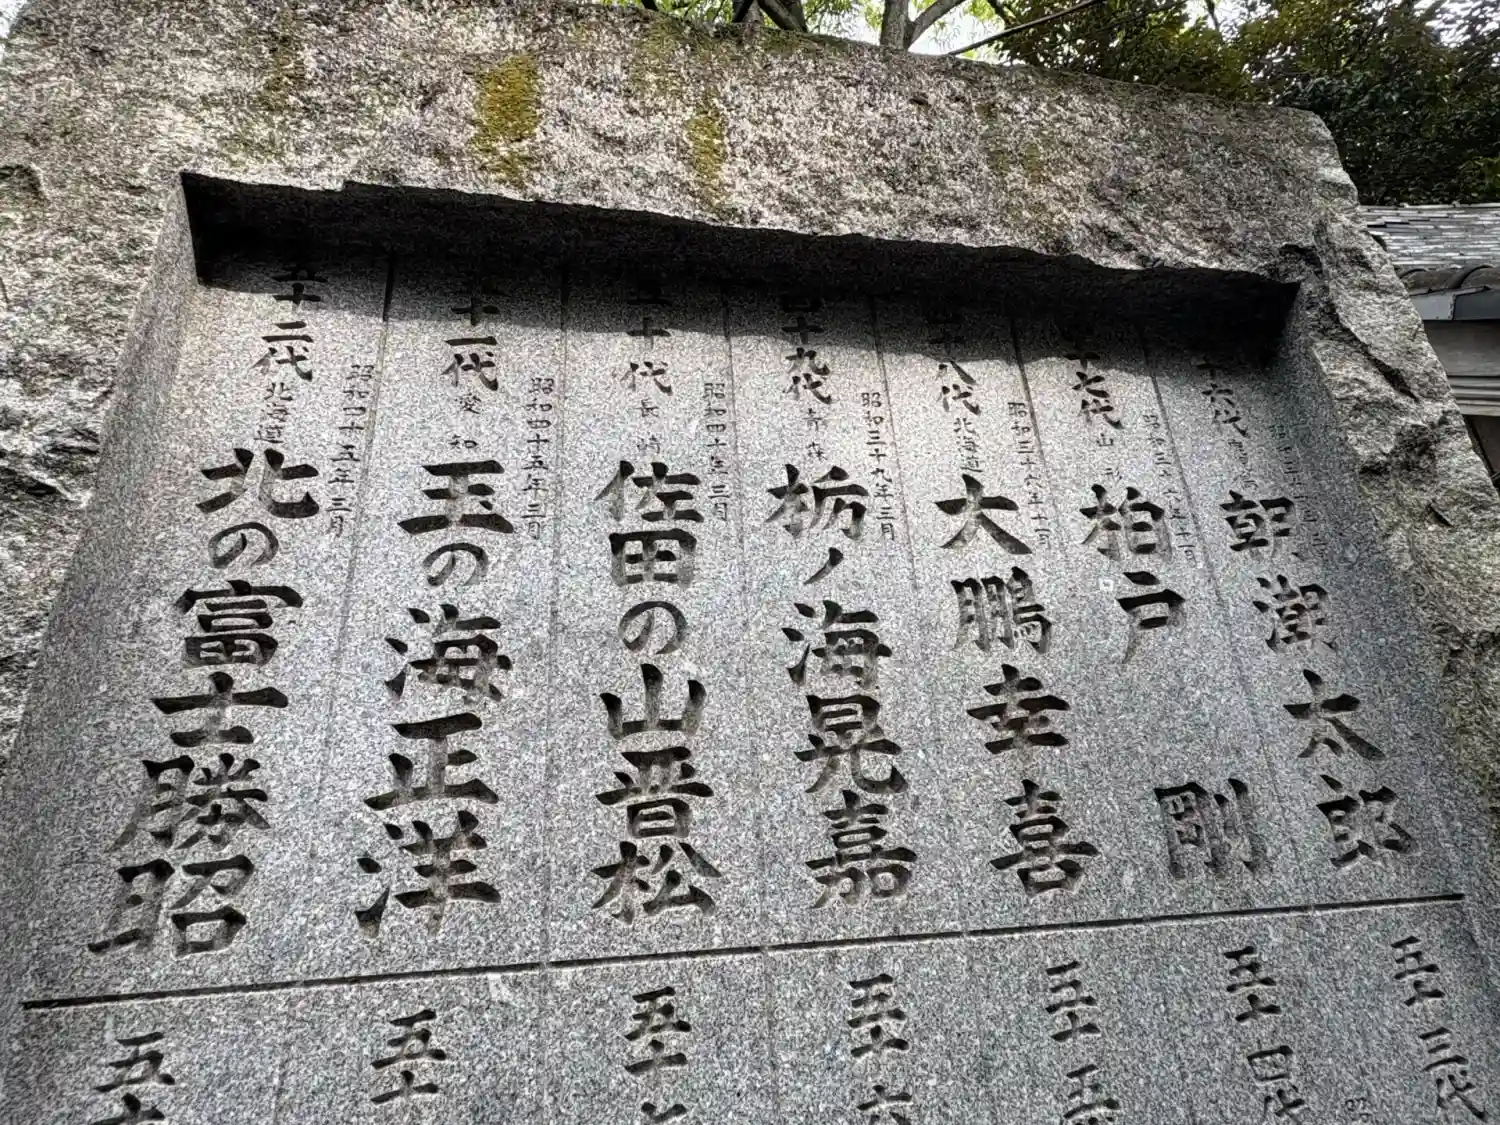 十六代
朝潮太郎
十七代 山形
柏戸剛
十八代 北海道 昭和三十六年十一月
大鵬幸喜
四十九代 青森 昭和三十九年三月
栃ノ海晃嘉
五十代 長崎 昭和四十年三月
佐田の山晋松
五十一代 愛知 昭和四十五年三月
玉の海正洋
五十二代 北海道 昭和四十五年三月
北の富士勝昭
五十三代
五十四代
五十五
五十六
五十七
五十
五十